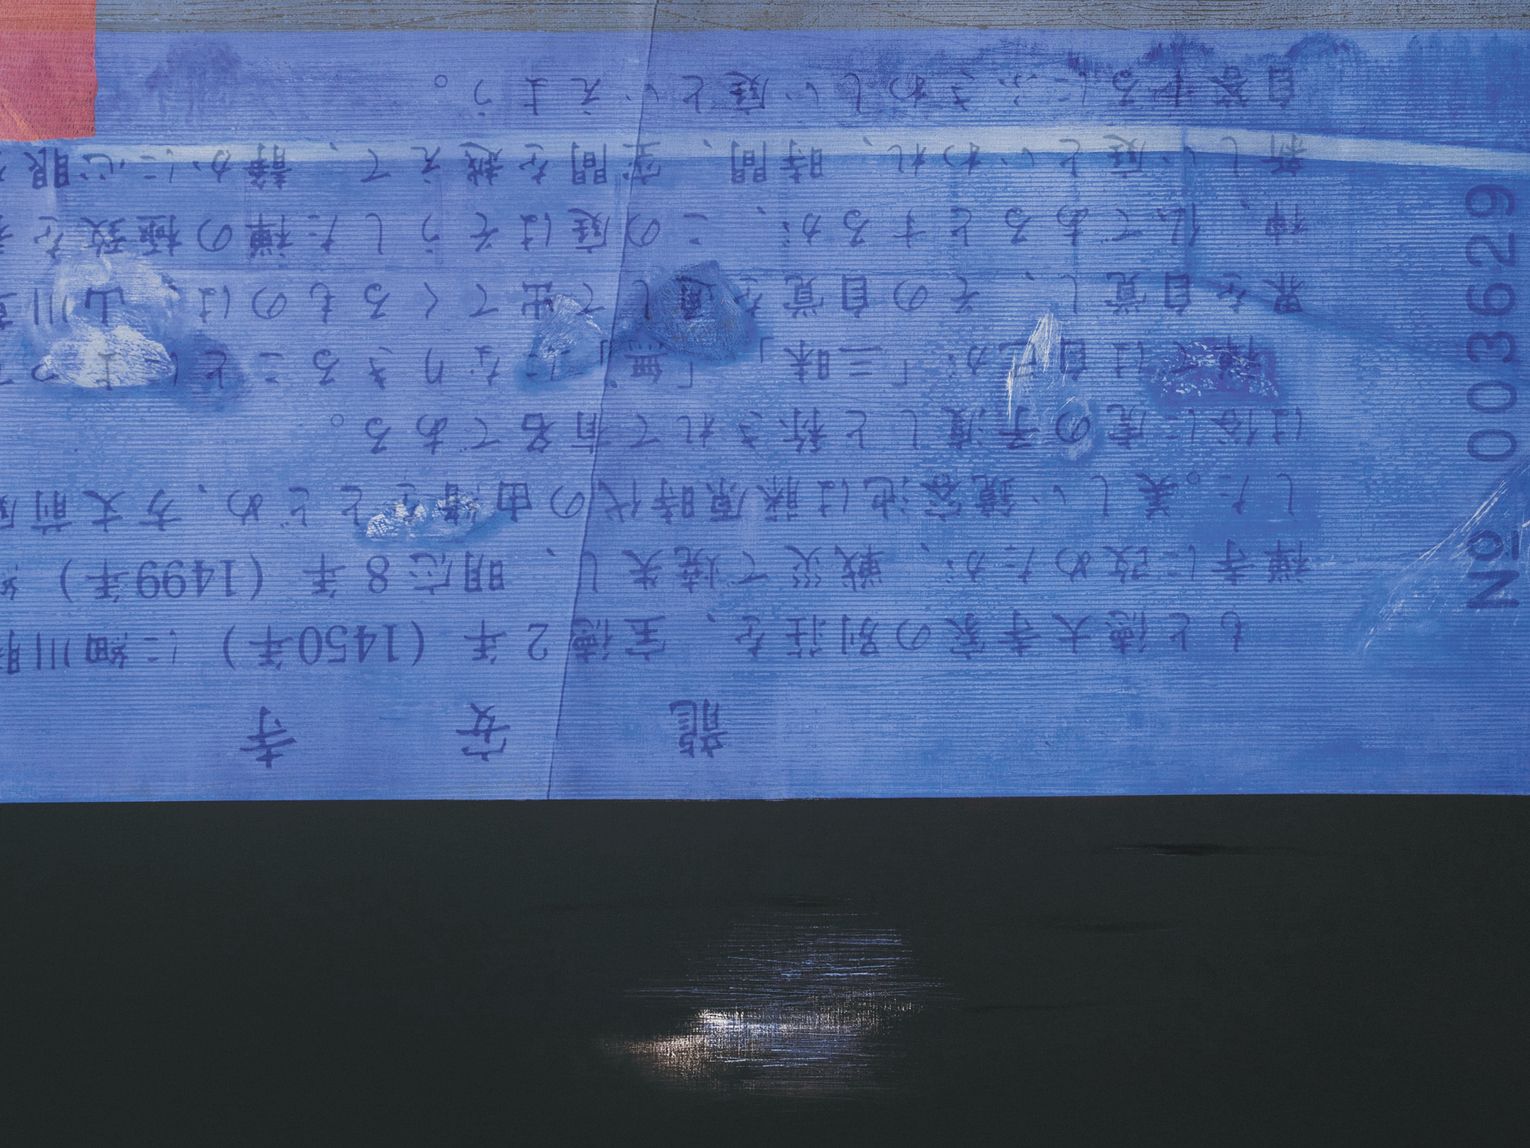 龍安寺
もと徳大寺家の別荘を、宝徳2年(1450年)に細川勝
禅寺に改めたが、戦災で焼失し、明応8年(1499年)
した。美しい鏡容池は藤原時代の由緒をとどめ、方丈前庭
は俗に虎の子渡しと称されて有名である。
禅では自己が「三昧」「無」になりきることによって
界を自覚し、その自覚を通して出てくるものは、山川
神、仏であるとするが、この庭はそうした禅の極致を
新しい庭といわれ、時間、空間を越えて、静かに心眼
自答するにふさわしい庭といえよう。
No 003629